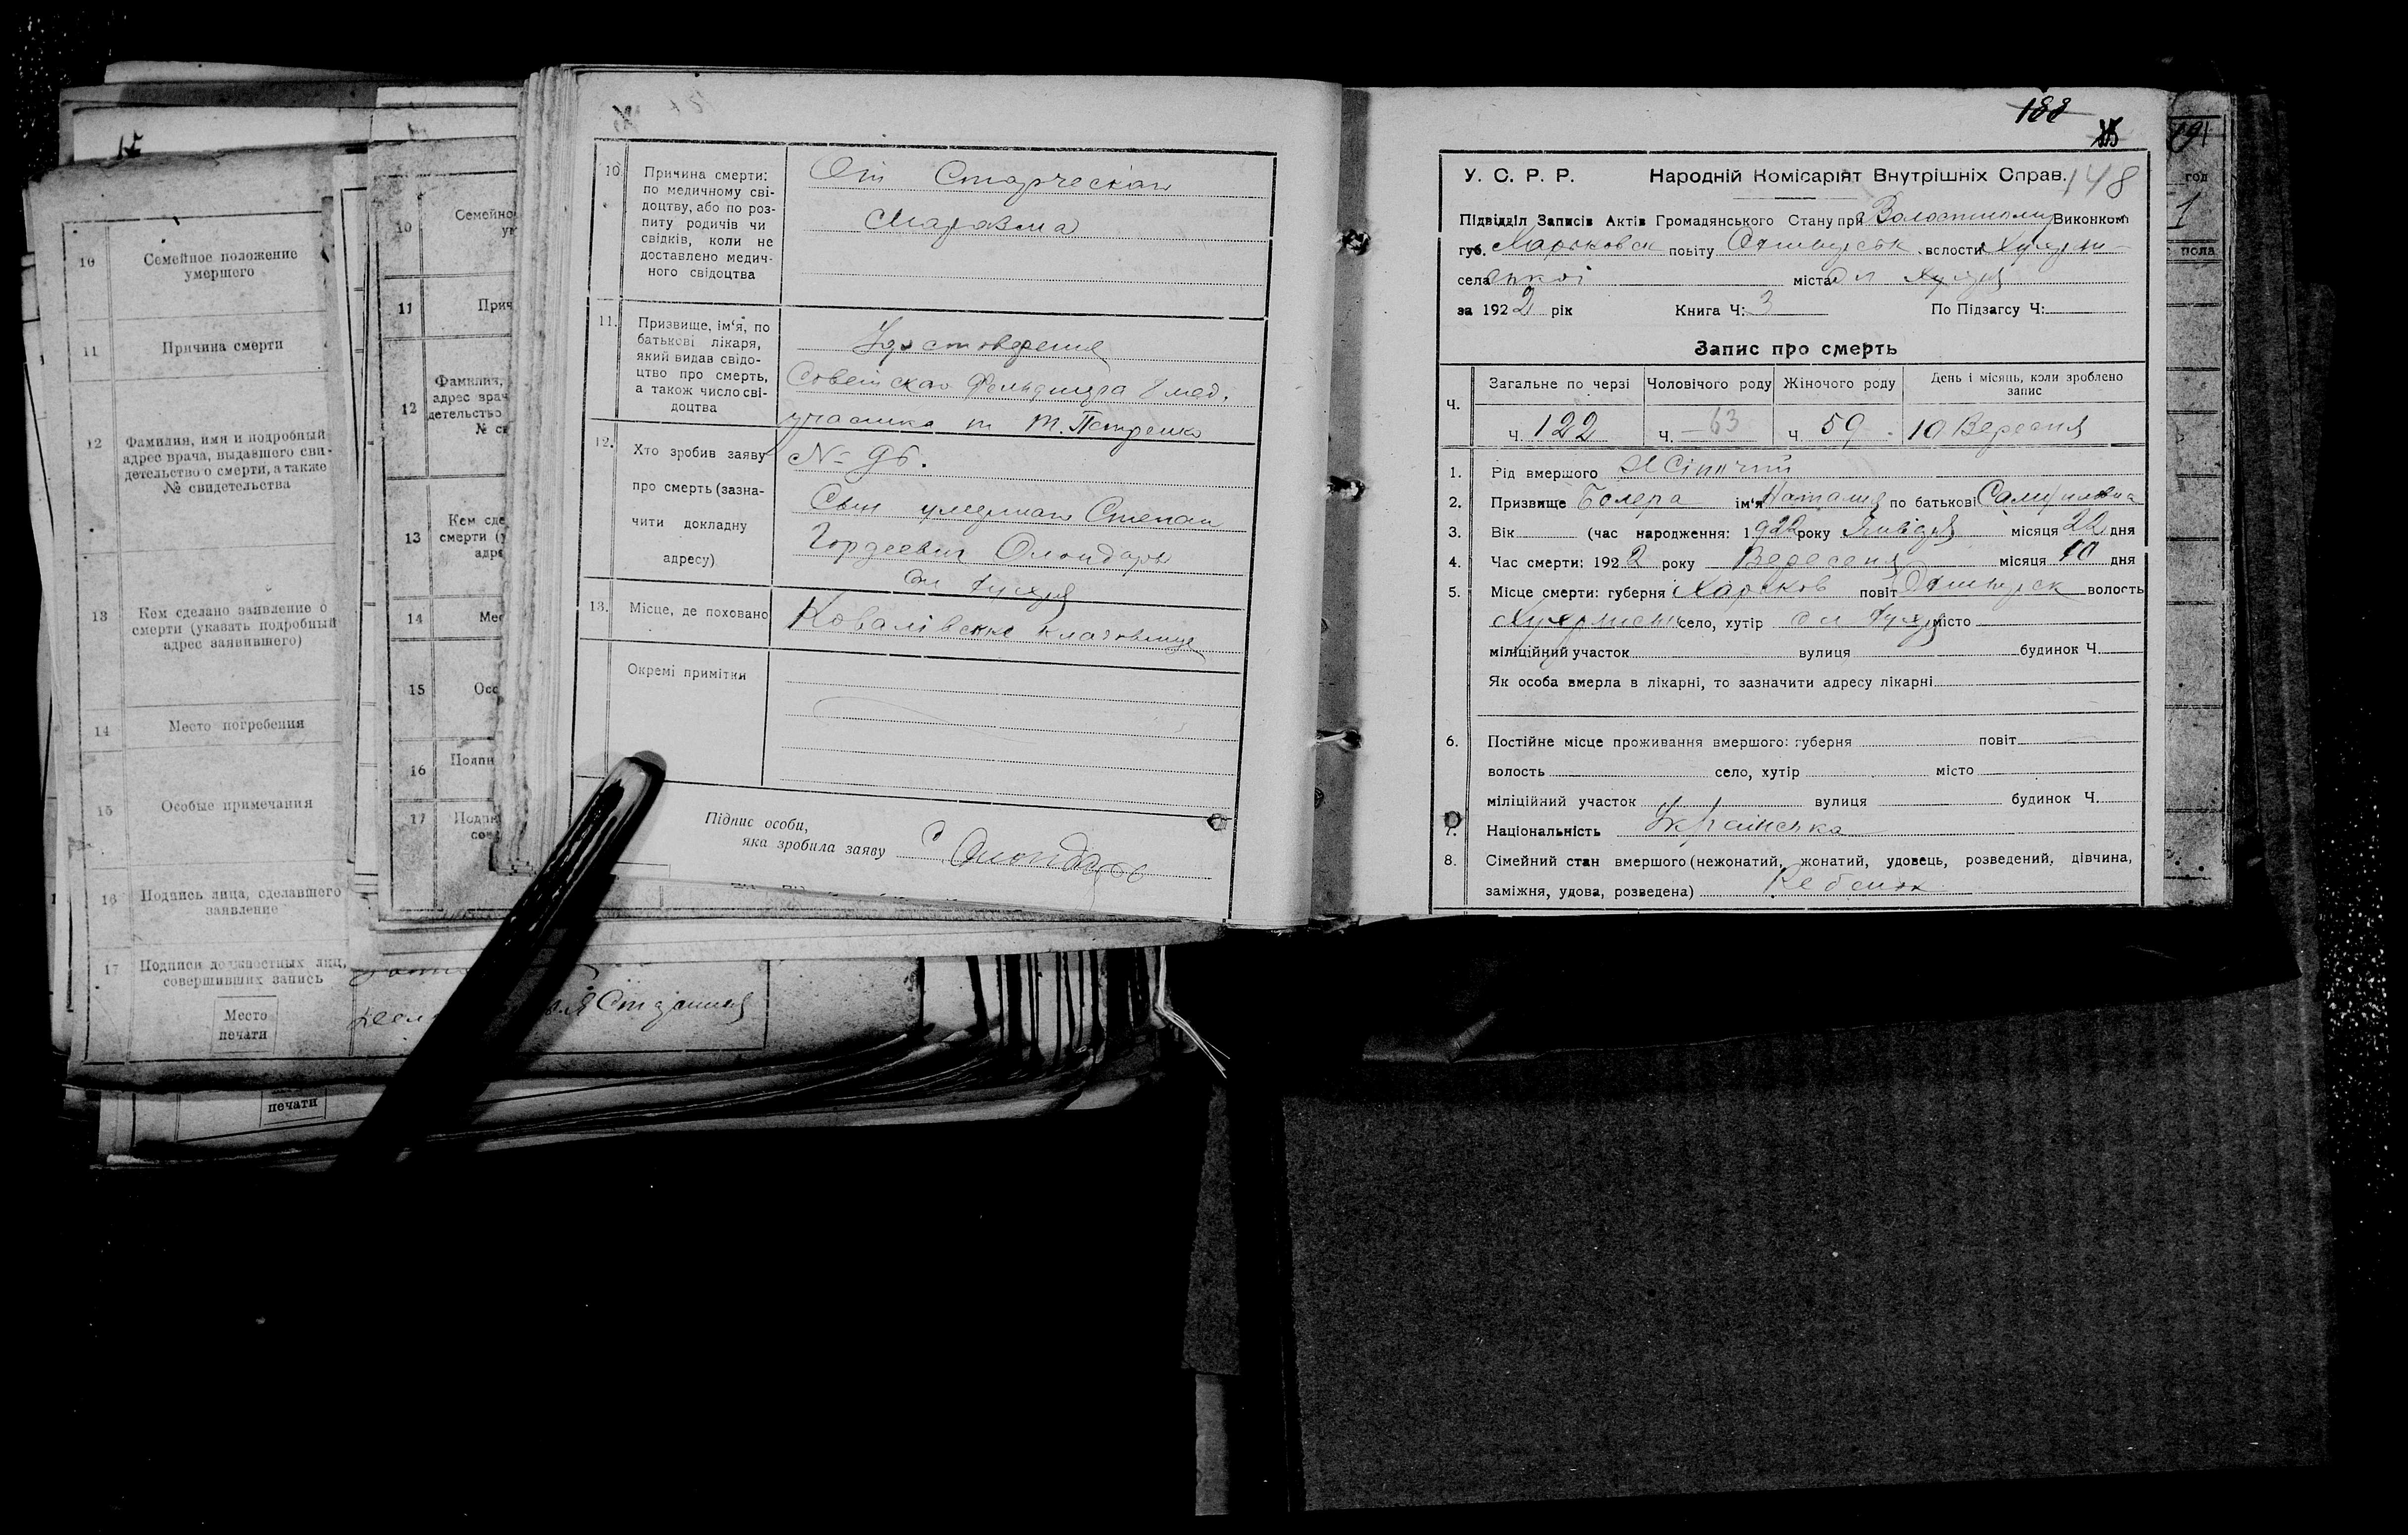 10
Семейное положение
умершего
11
Причина смерти
12
Фамилия, имя и подробный
адрес врача, выдавшего сви-
детельство о смерти, а также
№ свидетельства
13
Кем сделано заявление о
смерти (указать подробный
адрес заявившего)
14
Место погребения
15
Особые примечания
16
Подпись лица, сделавшего
заявление
17
Подписи должностных лиц,
совершивших запись
Место
печати
печати
10
Семейно
11
Прич
12
Фамилия,
адрес врач
детельство
№ св
13
Кем сде
смерти (у
адре
14
Мес
15
Осо
16
Подпи
17
10
Причина смерти:
по медичному сві-
доцтву, або по роз-
питу родичів чи
свідків, коли не
доставлено медич-
ного свідоцтва
От Старческаго
Маразма
11.
Призвище, ім'я, по
батькові лікаря,
який видав свідо-
цтво про смерть,
а також число сві-
доцтва
Удостоверения
Советскаго Фельдшера 8 мед.
участка т. Петренко
№ 96.
12.
Хто зробив заяву
про смерть (зазна-
чити докладну
адресу)
Сын умершаго Степан
Гордеевич
13.
Місце, де поховано
Ковалівське кладовище
Окремі примітки
Підпис особи,
яка зробила заяву
188
148
У. С. Р. Р. Народній Комісаріят Внутрішніх Справ.
Підвідділ Записів Актів Громадянського Стану при Волостному Виконком
губ. Харьковск повіту Охтирськ волости
села міста
за 1922 рік Книга Ч: 3 По Підзагсу Ч:
Запис про смерть
Ч.
Загальне по черзі
Чоловічого роду
Жіночого роду
День і місяць, коли зроблено
запис
Ч. 122
Ч. 63
Ч. 59
10 Вересня
1. Рід вмершого Жіночий
2. Призвище ім'я Наталия по батькові
3. Вік (час народження: 1922 року місяця 22 дня
4. Час смерти: 1922 року Вересеня місяця 10 дня
5. Місце смерти: губерня Харьков повіт волость
село, хутір місто
міліційний участок вулиця будинок Ч.
Як особа вмерла в лікарні, то зазначити адресу лікарні
6. Постійне місце проживання вмершого: губерня повіт
волость село, хутір місто
міліційний участок вулиця будинок Ч.
7. Національність Українська
8. Сімейний стан вмершого (нежонатий, жонатий, удовець, розведений, дівчина,
заміжня, удова, розведена) Ребенок
год
1
пола